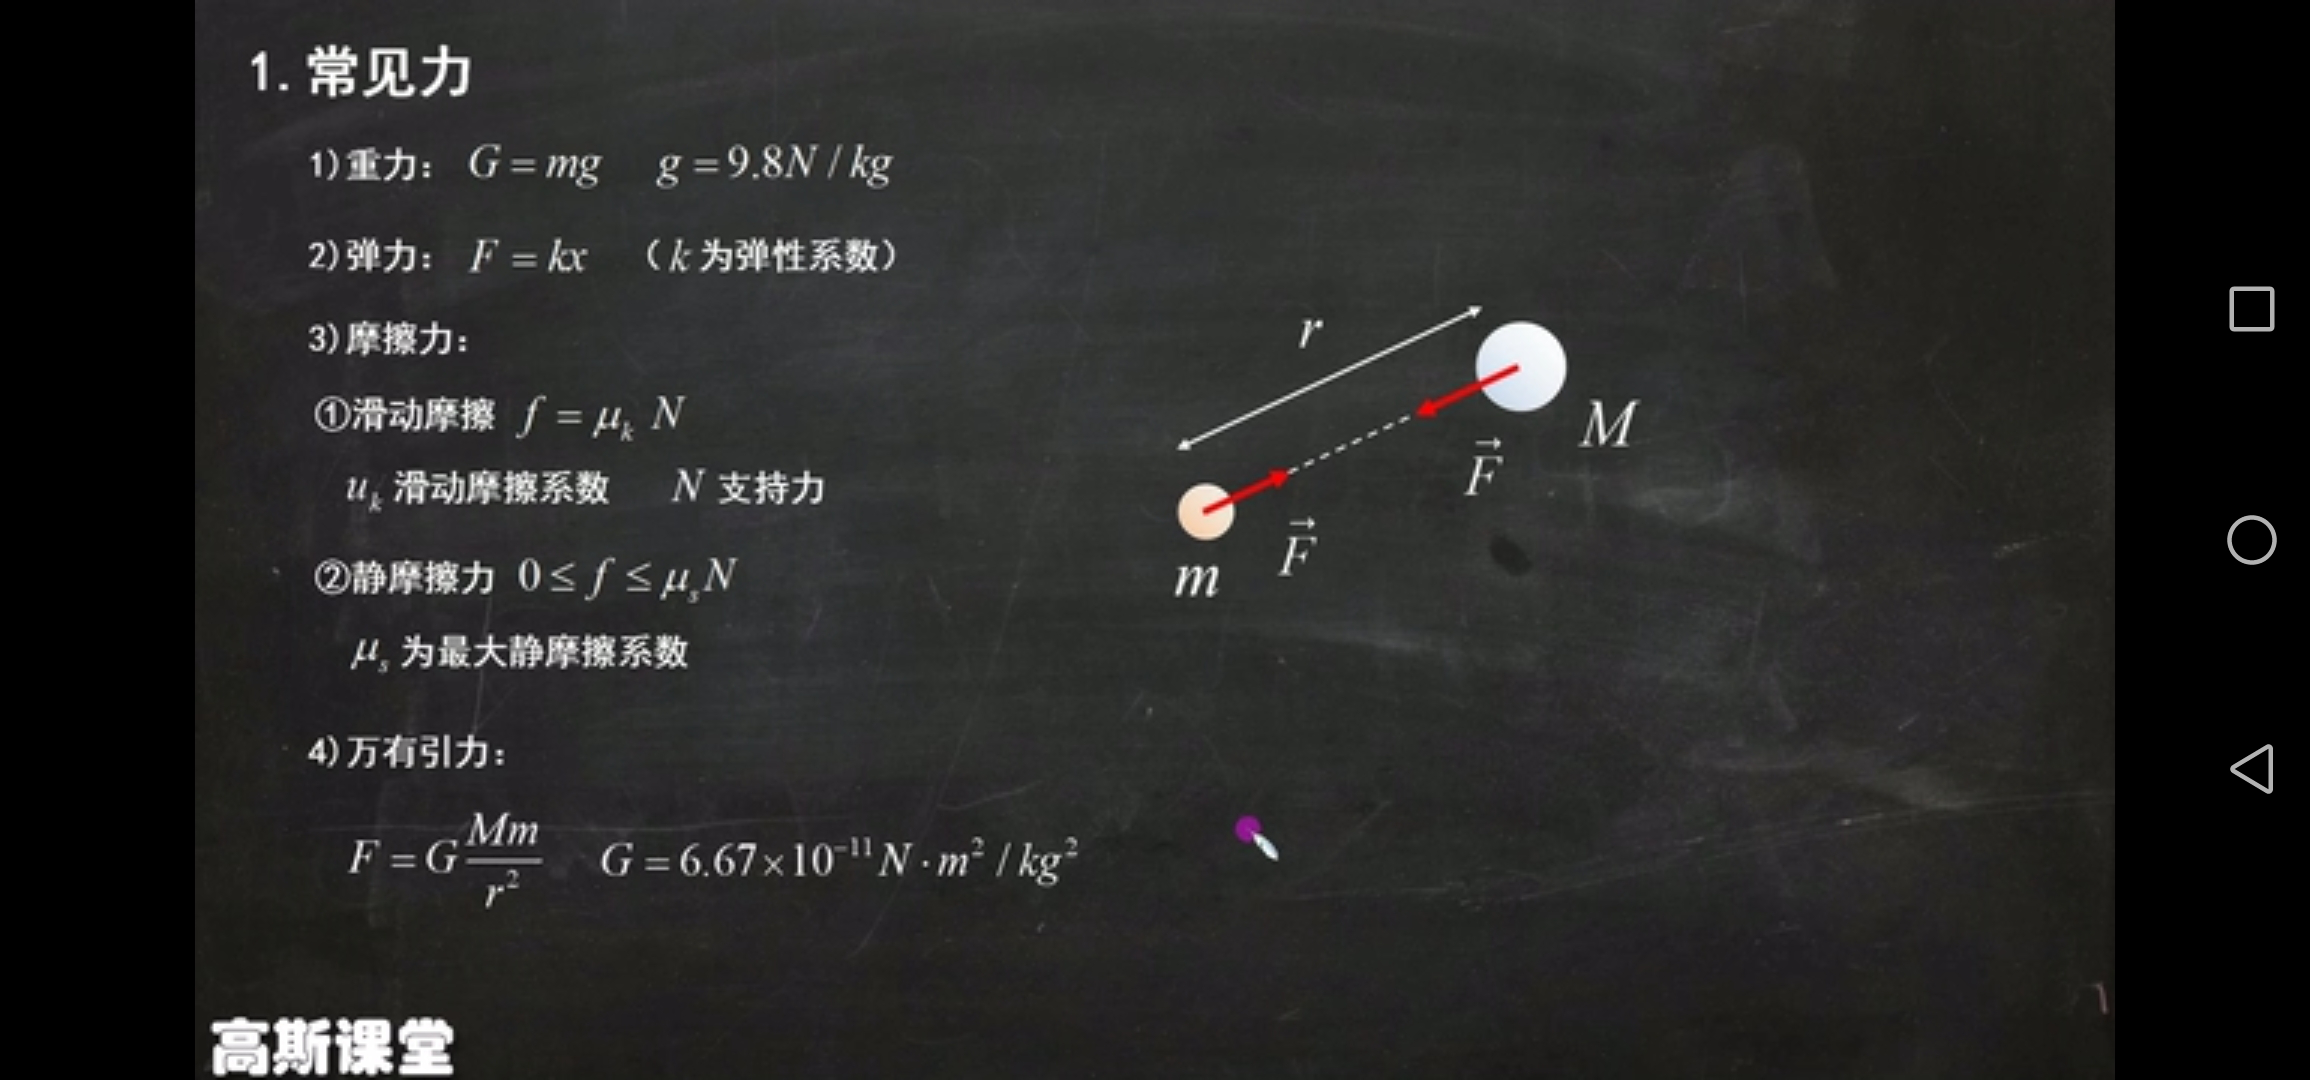 1.常见力
1)重力： G = mg g = 9.8N / kg
2)弹力： F = kx （k为弹性系数）
3)摩擦力：
①滑动摩擦 f = μk N
uk 滑动摩擦系数 N 支持力
②静摩擦力 0 ≤ f ≤ μsN
μs 为最大静摩擦系数
4)万有引力：
F = G Mm/r² G = 6.67×10⁻¹¹ N·m² / kg²
r
M
F⃗
F⃗
m
高斯课堂